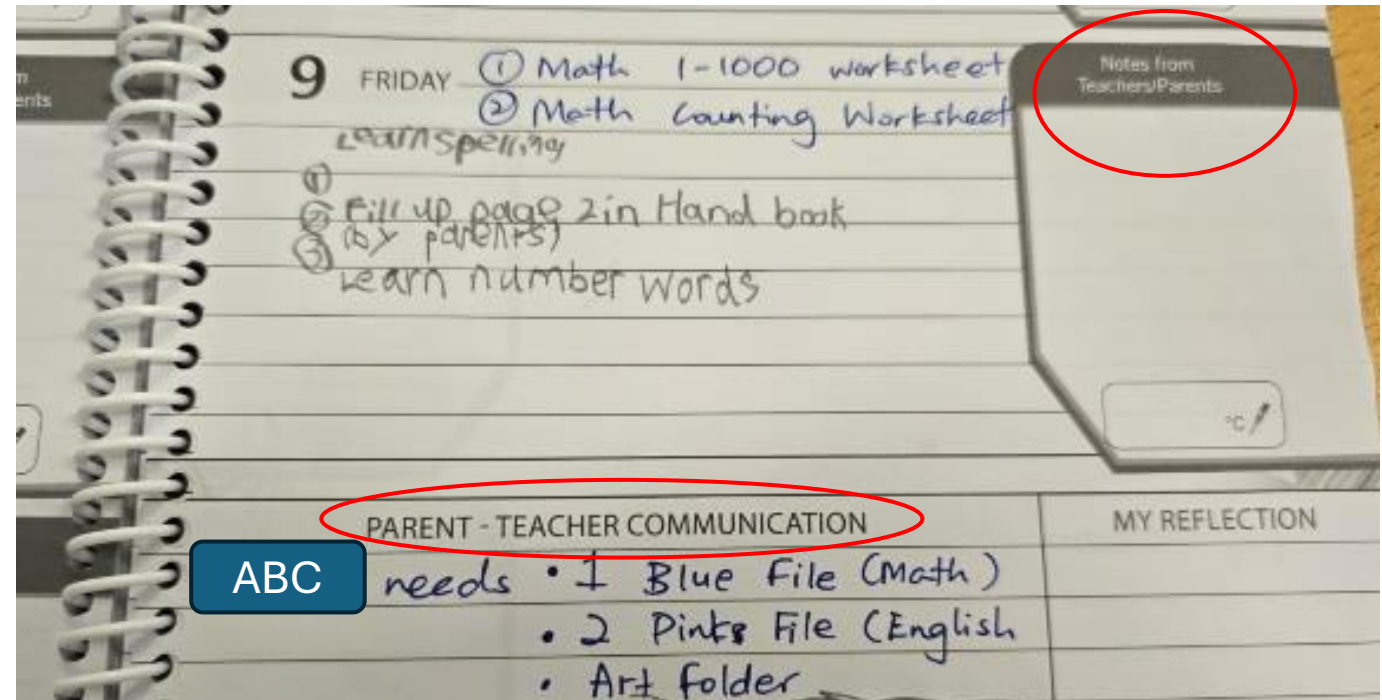 9 FRIDAY ① Math 1-1000 worksheet
② Math Counting Worksheet
Learn spelling
①
② Fill up page 2 in Hand book
(by parents)
③
Learn number words
Notes from
Teachers/Parents
°C
PARENT - TEACHER COMMUNICATION
MY REFLECTION
ABC needs • 1 Blue File (Math)
• 2 Pinks File (English
• Art folder